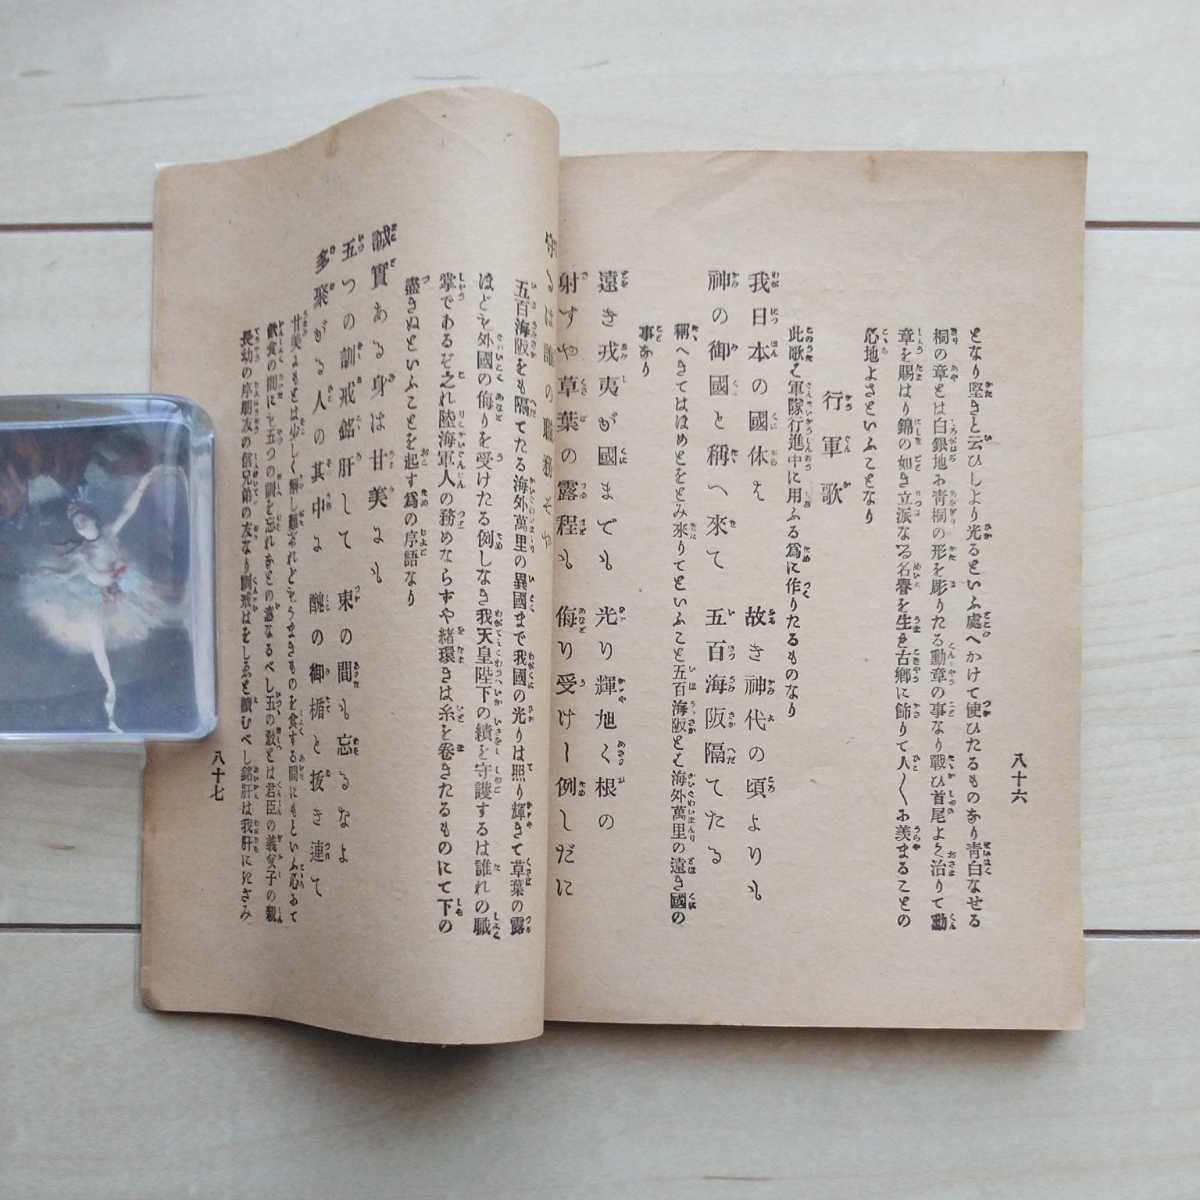 八十六
となり堅きと云ひしより光るといふ處へかけて使ひたるものあり青白なせる
桐の章とは白銀地お青桐の形を彫りたる勳章の事なり戰ひ首尾よく治りて勳
章を賜はり錦の如き立派なる名譽を生を古鄕に飾りて人〳〵お羨まるゝことの
心地よさといふことなり
行軍歌
此歌ハ軍隊行進中に用ふる爲に作りたるものなり
我日本の國体ハ 故き神代の頃よりも
神の御國と稱へ來て 五百海阪隔てたる
稱へきてははめとをとみ來りてといふこと五百海阪とハ海外萬里の遠き國の
事あり
遠き戎夷が國までも 光り輝旭く根の
射すや草葉の露程も 侮り受けし例しだに
守るは誰の職務そや
五百海阪をも隔てたる海外萬里の異國まで我國の光りは照り輝きて草葉の露
ほどを外國の侮りを受けたる例しなき我天皇陛下の績を守護するは誰れの職
掌であるぞ之れ陸海軍人の務めならずや緒環きは糸を卷きたるものにて下の
盡きぬといふことを起す爲の序語なり
誠實ある身は甘美よも
五つの訓戒銘肝して 東の間も忘るなよ
多聚がる人の其中よ 醜の御楯と扱き連て
甘美よもとは少しく解し難けれどもうまきものを食する間にもといふ心るて
飮食の間にも五つの間を忘れるとの意なるべし五の敎とは君臣の義父子の親
長幼の序朋友の信兄弟の友なり訓戒はをしゑと讀むべし銘肝は我肝にきざみ
八十七